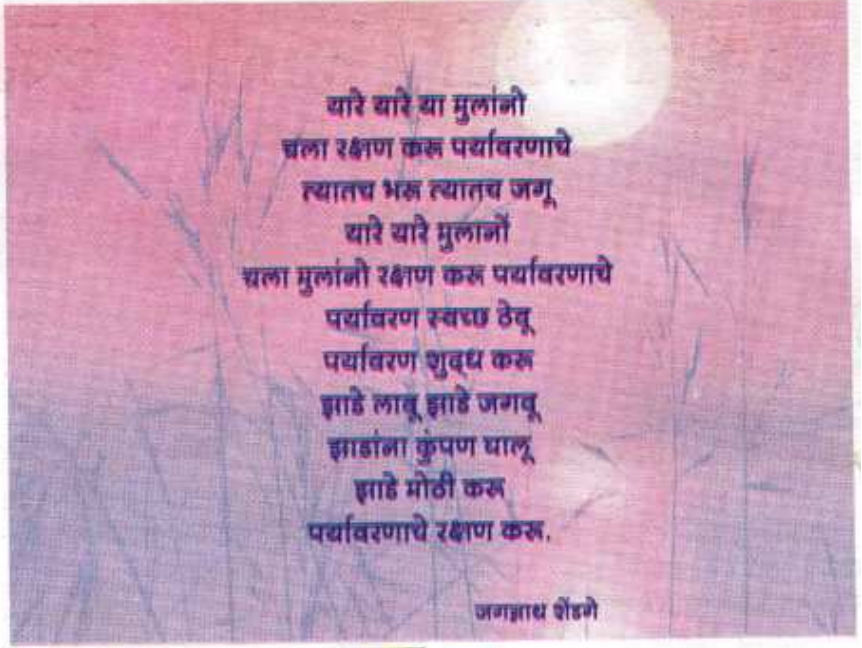 यारे यारे या मुलांनो
चला रक्षण करू पर्यावरणाचे
त्यातच भरू त्यातच जगू
यारे यारे मुलानों
चला मुलांनो रक्षण करू पर्यावरणाचे
पर्यावरण स्वच्छ ठेवू
पर्यावरण शुद्ध करू
झाडे लावू झाडे जगवू
झाडांना कुंपण घालू
झाडे मोठी करू
पर्यावरणाचे रक्षण करू.
जगन्नाथ शेंडगे